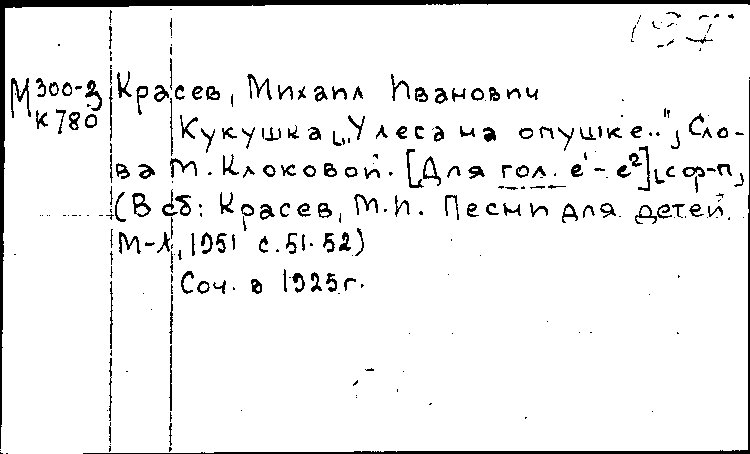 М 300-3 Красев, Михаил Иванович
К 780 Кукушка [„У леса на опушке.."] Сло-
ва М. Клоковой. [Для гол. e¹-e²] с ф-п,
(В сб: Красев, М.И. Песни для детей.
М-Л, 1951 с. 51-52)
Соч. в 1925г.